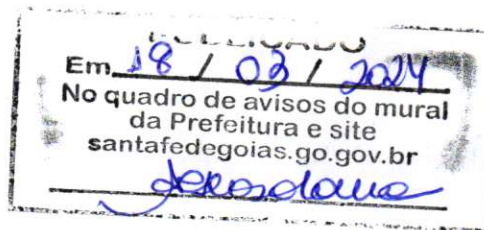 PUBLICADO
Em 18 / 03 / 2024
No quadro de avisos do mural
da Prefeitura e site
santafedegoias.go.gov.br